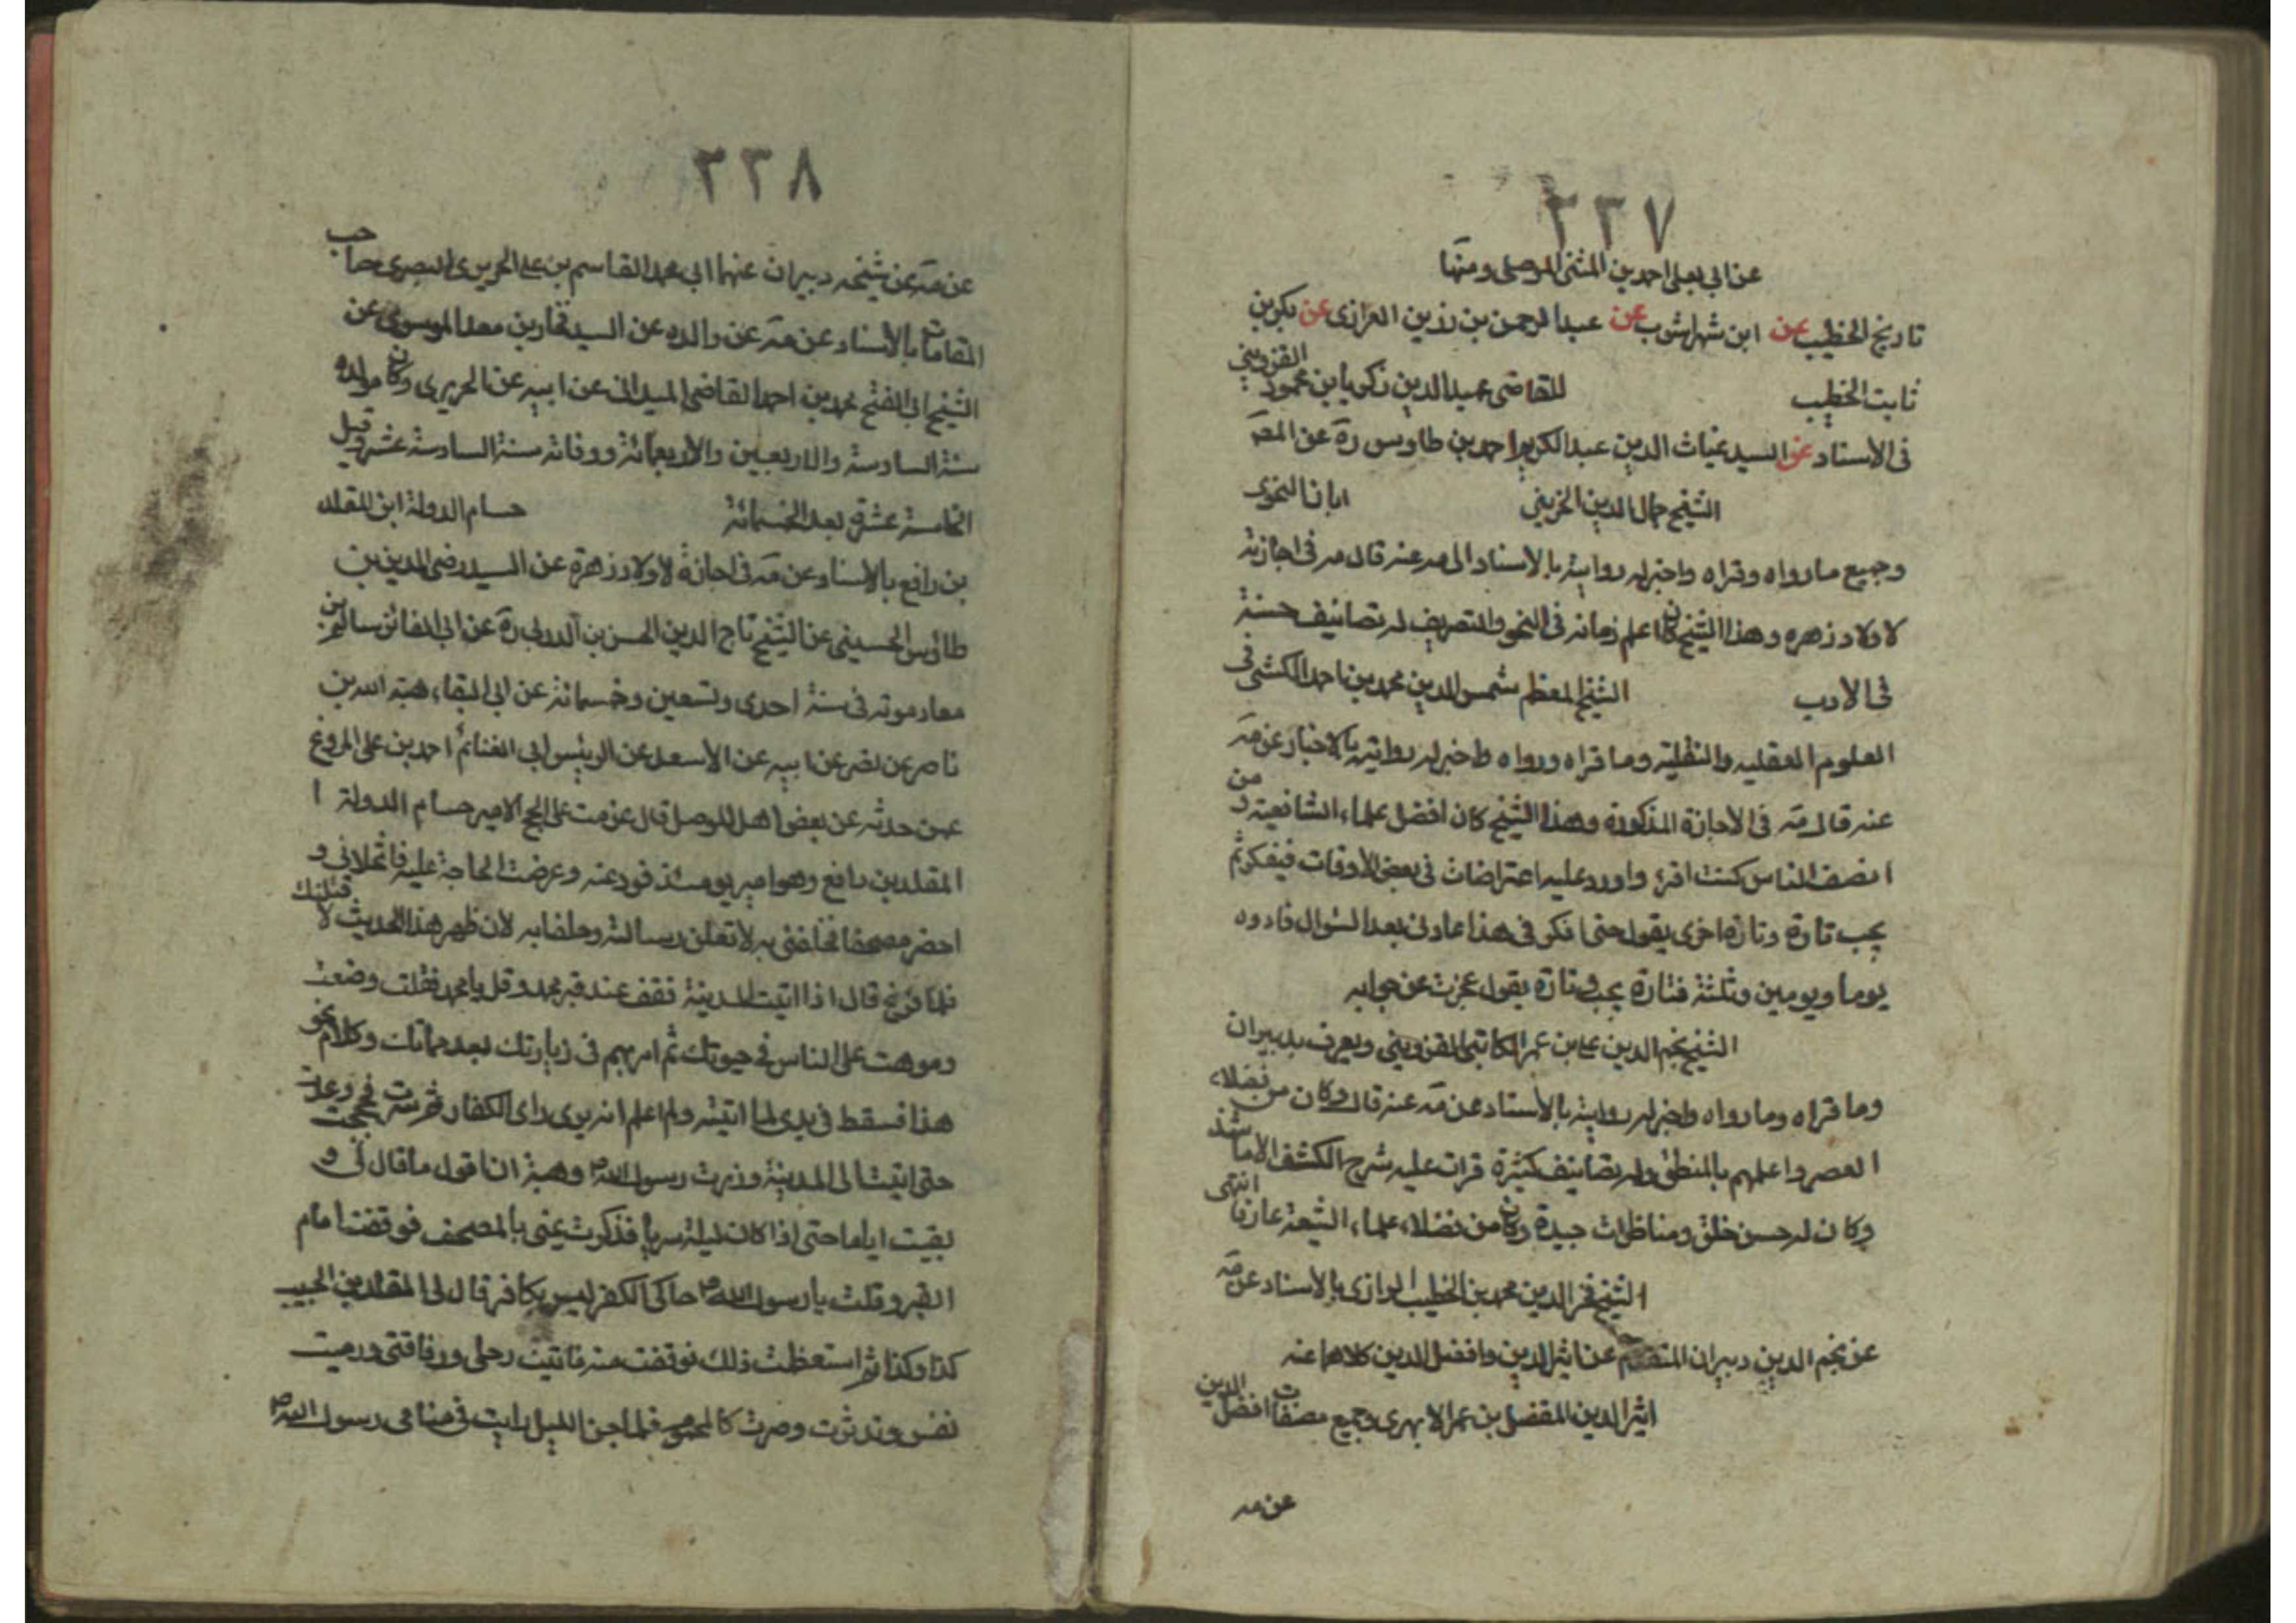 ٢٣٧
عن ابي يعلى احمد بن المثنى الموصلي ومنها
تاريخ الخطيب عن ابن شهراشوب عن عبدالرحمن بن رزين العزازى عن بكر بن
ثابت الخطيب للقاضى عميد الدين زكريا بن محمود القزويني
فى الاسناد عن السيد غياث الدين عبد الكريم احمد بن طاوس ره عن المصَ
الشيخ جمال الدين الخزيني ابانا النحوى
وجميع ما رواه وقراه واجيز له روايته بالاسناد الى مه عنه قال مه فى اجازته
لاولاد زهره وهذا الشيخ كان اعلم زمانه فى النحو والتصريف له تصانيف حسنة
فى الادب الشيخ المعظم شمس الدين محمد بن احمد الكشى فى
العلوم العقليه والنقلية وما قراه ورواه واجيز له روايته بالاخبار عن مَه
عنه قال مَه فى الاجازة المذكورة وهذا الشيخ كان افضل علماء الشافعية و من
انصف الناس كنت اقرء واورد عليه اعتراضات فى بعض الاوقات فيفكر ثم
يجب تارة وتارة اخرى يقول حتى افكر فى هذا عاودنى بعد السؤال فاوده
يوما ويومين وثلثة فتارة يجب وتارة يقول عجزت عن جوابه
الشيخ نجم الدين على بن عمر الكاتبى القزويني ويعرف بدبيران
وما قراه وما رواه واجيز له روايته بالاسناد عن مَه عنه قال وكان من فضلاء
العصر واعلمهم بالمنطق وله تصانيف كثيرة قرات عليه شرح الكشف الا ما شذ
وكان له حسن خلق ومناظرات جيدة وكان من فضلاء علماء الشيعة عارفا انتهى
الشيخ فخر الدين محمد بن الخطيب الرازى بالاسناد عن مَه
عن نجم الدين دبيران المتقدم عن اثير الدين وافضل الدين كلاهما عنه
اثير الدين المفضل بن عمر الابهرى وجميع مصنفات افضل الدين
عن مه
٢٣٨
عن مَه عن شيخه دبيران عنهما ابى محمد القاسم بن على الحريرى البصرى صاحب
المقامات بالاسناد عن مَه عن والده عن السيد فخار بن معد الموسوى عن
الشيخ ابى الفتح محمد بن احمد القاضى الميدانى عن ابيه عن الحريرى وكان مولده
سنة السادسة والاربعين والاربعمائة ووفاته سنة السادسة عشر وقيل
الخامسة عشر بعد الخمسمائة حسام الدولة ابن المقلد
بن رافع بالاسناد عن مَه فى اجازة لاولاد زهرة عن السيد رضى الدين بن
طاؤس الحسينى عن الشيخ تاج الدين الحسن بن الدربى ره عن ابى الفائز سالم بن
معارمونه فى سنة احدى وتسعين وخمسمائة عن ابى البقاء هبة الله بن
ناصر عن نصر عن ابيه عن الاسعد عن الرئيس ابى الغنائم احمد بن على المروغ
عمن حدثه عن بعض اهل الموصل قال عزمت على الحج الامير حسام الدولة ا
المقلد بن رافع وهو امير يومئذ فودعته وعرضت الحاجة عليه فاتخلانى و
احضر مصحفا فحلفنى به لا تعلن رسالته وحلف به لان ظهر هذا الحديث لا قتلنك
فلما فرغ قال اذا اتيت المدينة فقف عند قبر محمد وقل يا محمد فقلت وضعت
وموهت على الناس فى حيوتك ثم امرتهم فى زيارتك بعد مماتك وكلام نحو
هذا فسقط فى يدى لما اتيته ولم اعلم انه يرى راى الكفار فحججت وعدت
حتى اتيت الى المدينة وزرت رسول الله ص وهبة ان اقول ما قال لى و
بقيت اياما حتى اذا كان ليلة سربا فذكرت يمنى بالمصحف فوقفت امام
القبر وقلت يا رسول الله ص حاكى الكفر ليس بكافر قال لى المقلد بن الحبيب
كذا وكذا ثم استعظمت ذلك فوقفت منه فاتيت رحلى ورفاقتى ورميت
نفسى وتدثرت وصرت كالمحموم فلما جن الليل رايت فى منامى رسول الله ص